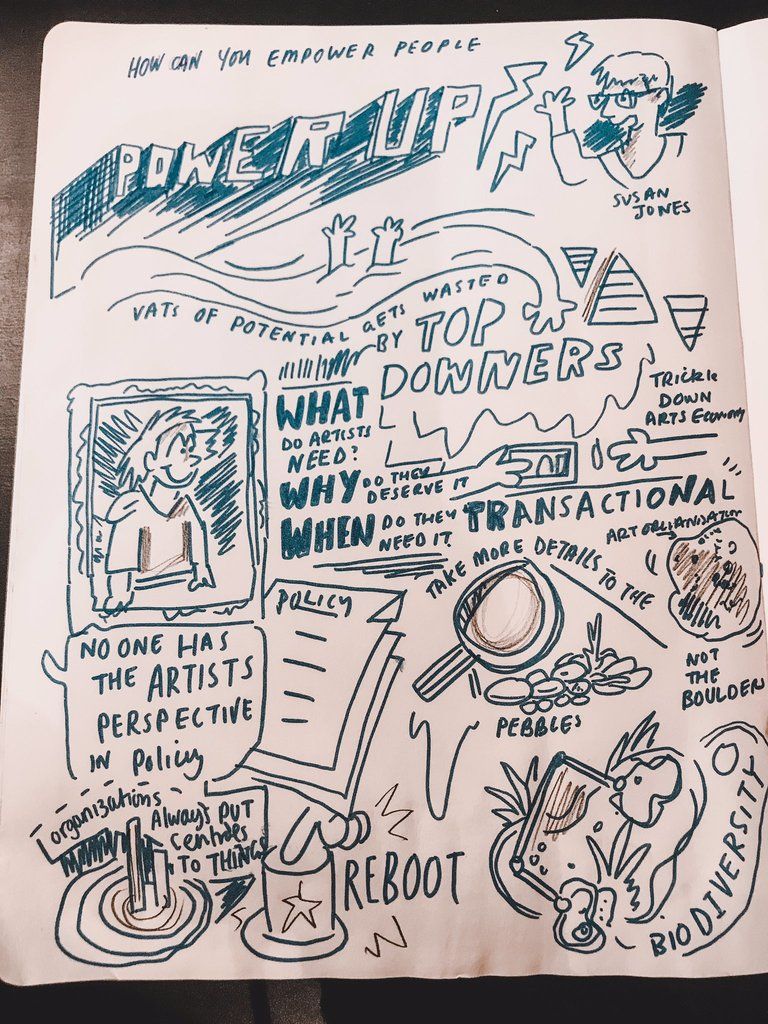 HOW CAN YOU EMPOWER PEOPLE
POWER UP
SUSAN
JONES
VATS OF POTENTIAL GETS WASTED
BY TOP
DOWNERS
TRICKLE
DOWN
ARTS Economy
WHAT
DO ARTISTS
NEED?
WHY DO THEY
DESERVE IT
WHEN DO THEY
NEED IT
TRANSACTIONAL
TAKE MORE DETAILS TO THE
PEBBLES
ART ORGANISATION
NOT
THE
BOULDER
POLICY
NO ONE HAS
THE ARTISTS
PERSPECTIVE
IN Policy
organizations
Always PUT
Centres
TO THINGS
REBOOT
BIODIVERSITY